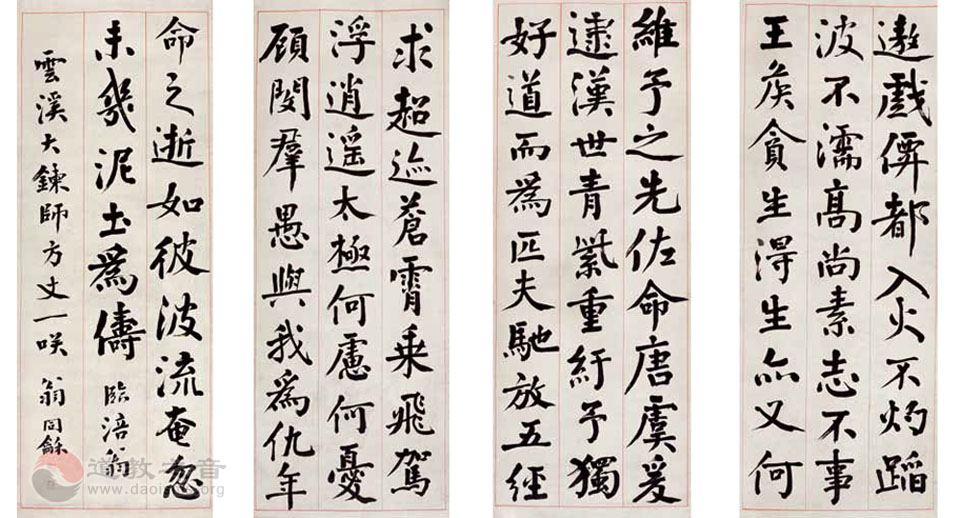 遨戲僊都入火不灼蹈
波不濡高尚素志不事
王侯貪生得生亦又何
維予之先佐命唐虞爰
逮漢世青紫重紆予獨
好道而為匹夫馳放五經
求超迹蒼霄乗飛駕
浮逍遥太極何慮何憂
顧閔羣愚與我為仇年
命之逝如彼波流奄忽
未幾泥土為儔 臨涪翁
雲溪大鍊師方丈一咲 翁同龢
道教之音